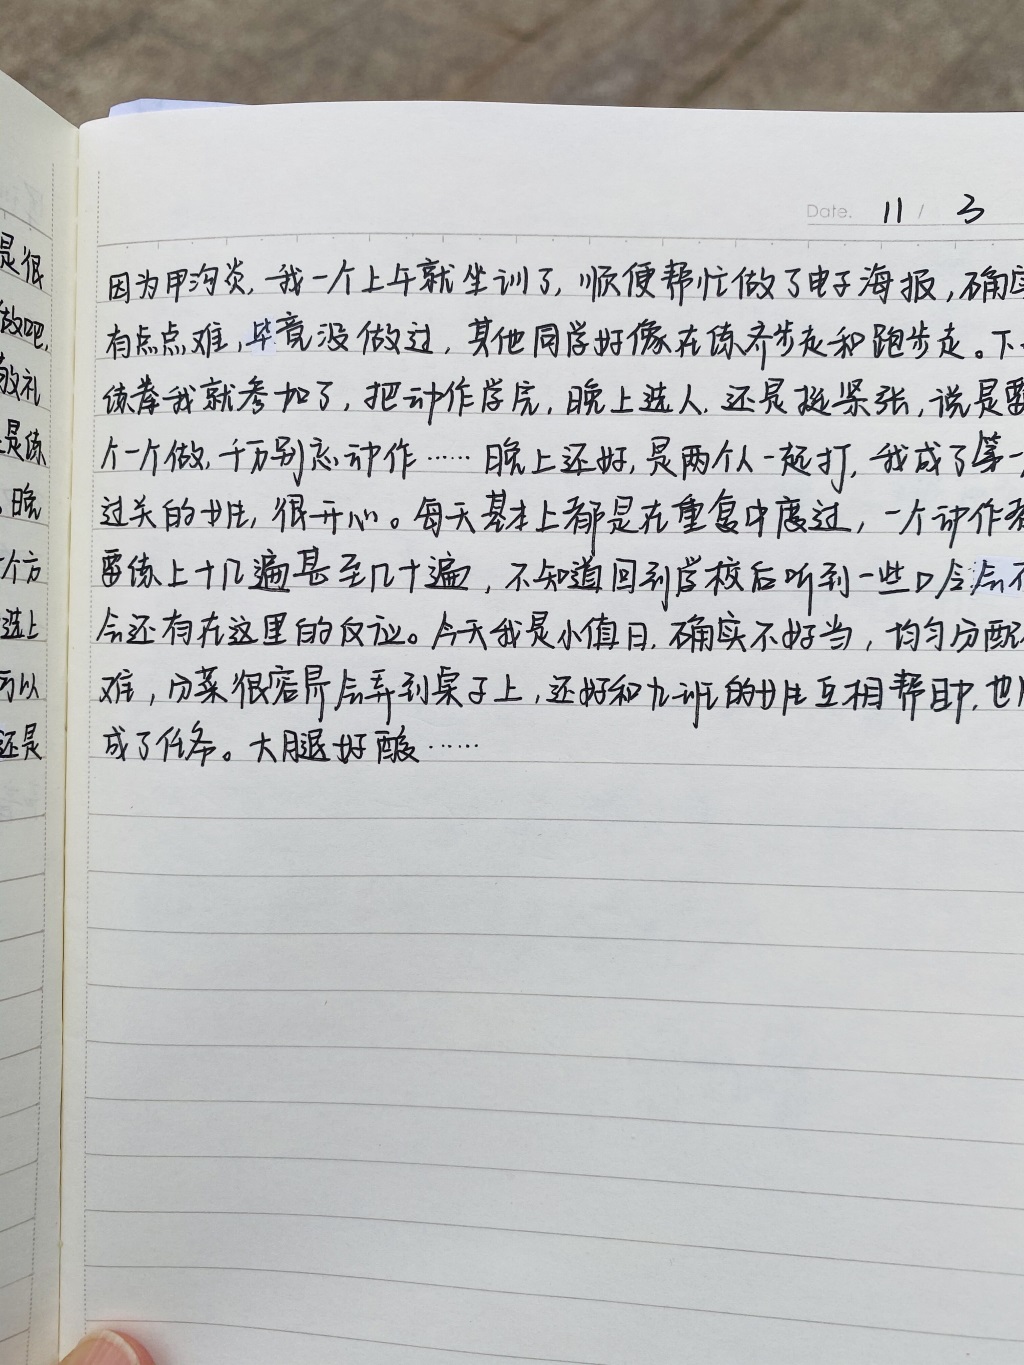 是很
做吧,
敬礼
是练
,晚
个方
选上
可以
还是
Date. 11 / 3
因为甲沟炎,我一个上午就坐训了,顺便帮忙做了电子海报,确实
有点点难,毕竟没做过,其他同学好像在练齐步走和跑步走。下
练拳我就参加了,把动作学完,晚上选人,还是挺紧张,说是要
个一个做,千万别忘动作……晚上还好,是两个人一起打,我成了第一
过关的女生,很开心。每天基本上都是在重复中度过,一个动作
要练上十几遍甚至几十遍,不知道回到学校后听到一些口令会不
会还有在这里的反应。今天我是小值日,确实不好当,均匀分配
难,分菜很容易会弄到桌子上,还好和九班的女生互相帮助,也
成了任务。大腿好酸……